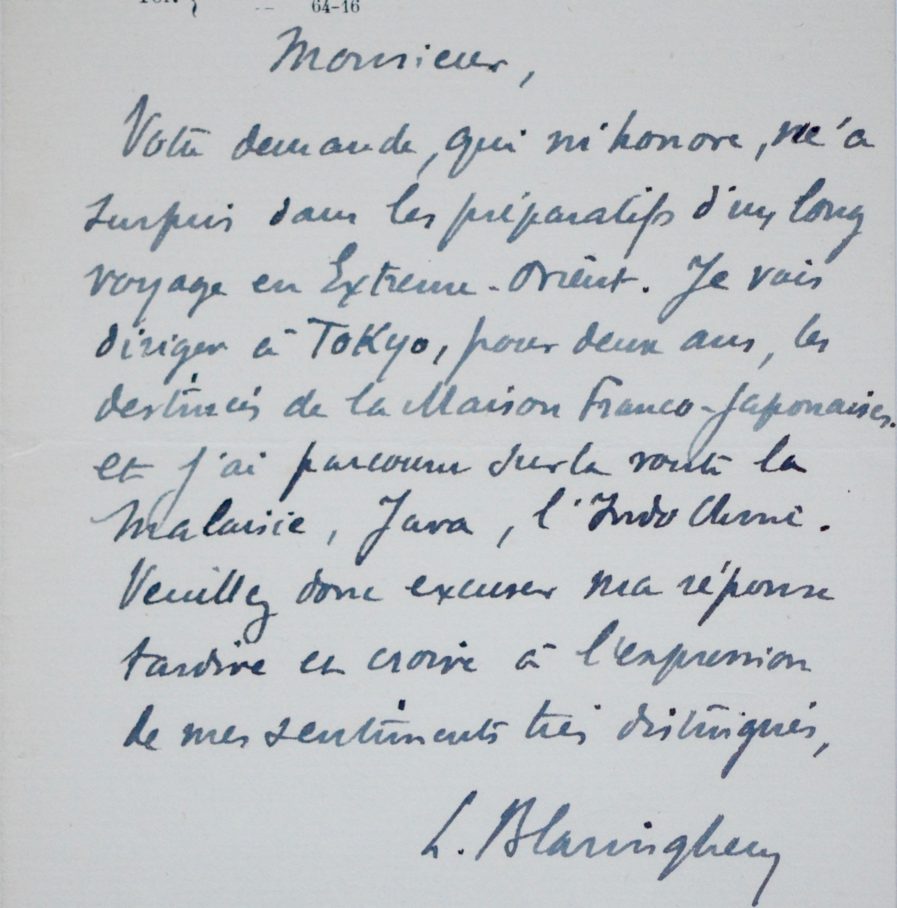 64-16
Monsieur,
Votre demande, qui m'honore, m'a
surpris dans les préparatifs d'un long
voyage en Extreme-Orient. Je vais
diriger à Tokyo, pour deux ans, les
destinées de la Maison Franco-Japonaise.
et j'ai parcouru sur la route la
Malaisie, Java, l'IndoChine.
Veuillez donc excuser ma réponse
tardive et croire à l'expression
de mes sentiments très distingués,
L. Blaringhem